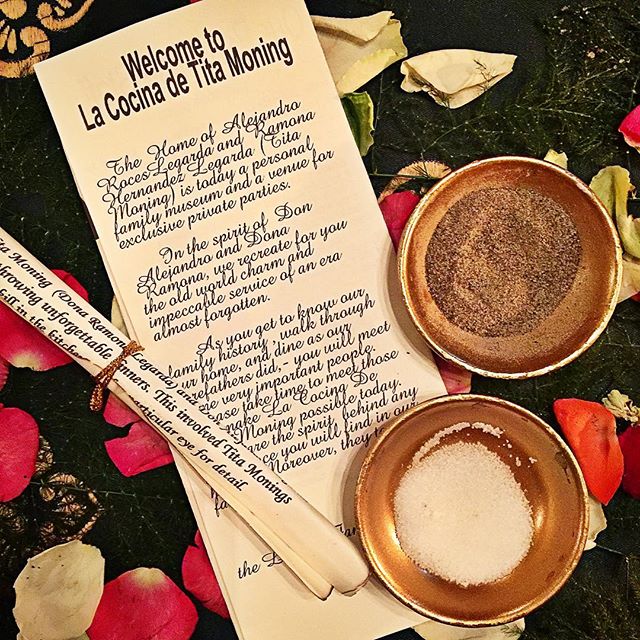 Welcome to
La Cocina de Tita Moning
The Home of Alejandro
Roces Legarda and Ramona
Hernandez Legarda (Tita
Moning) is today a personal
family museum and a venue for
exclusive private parties.
In the spirit of Don
Alejandro and Dona
Ramona, we recreate for you
the old world charm and
impeccable service of an era
almost forgotten.
As you get to know our
family history, walk through
our home, and dine as our
forefathers did, - you will meet
very important people.
take time to meet those
make La Cocina De
Moning possible today.
are the spirit, behind any
you will find in our
Moreover, they
the
Tita Moning (Dona Ramona Legarda)
throwing unforgettable dinners. This involved Tita Monings
in the kitchen
particular eye for detail.